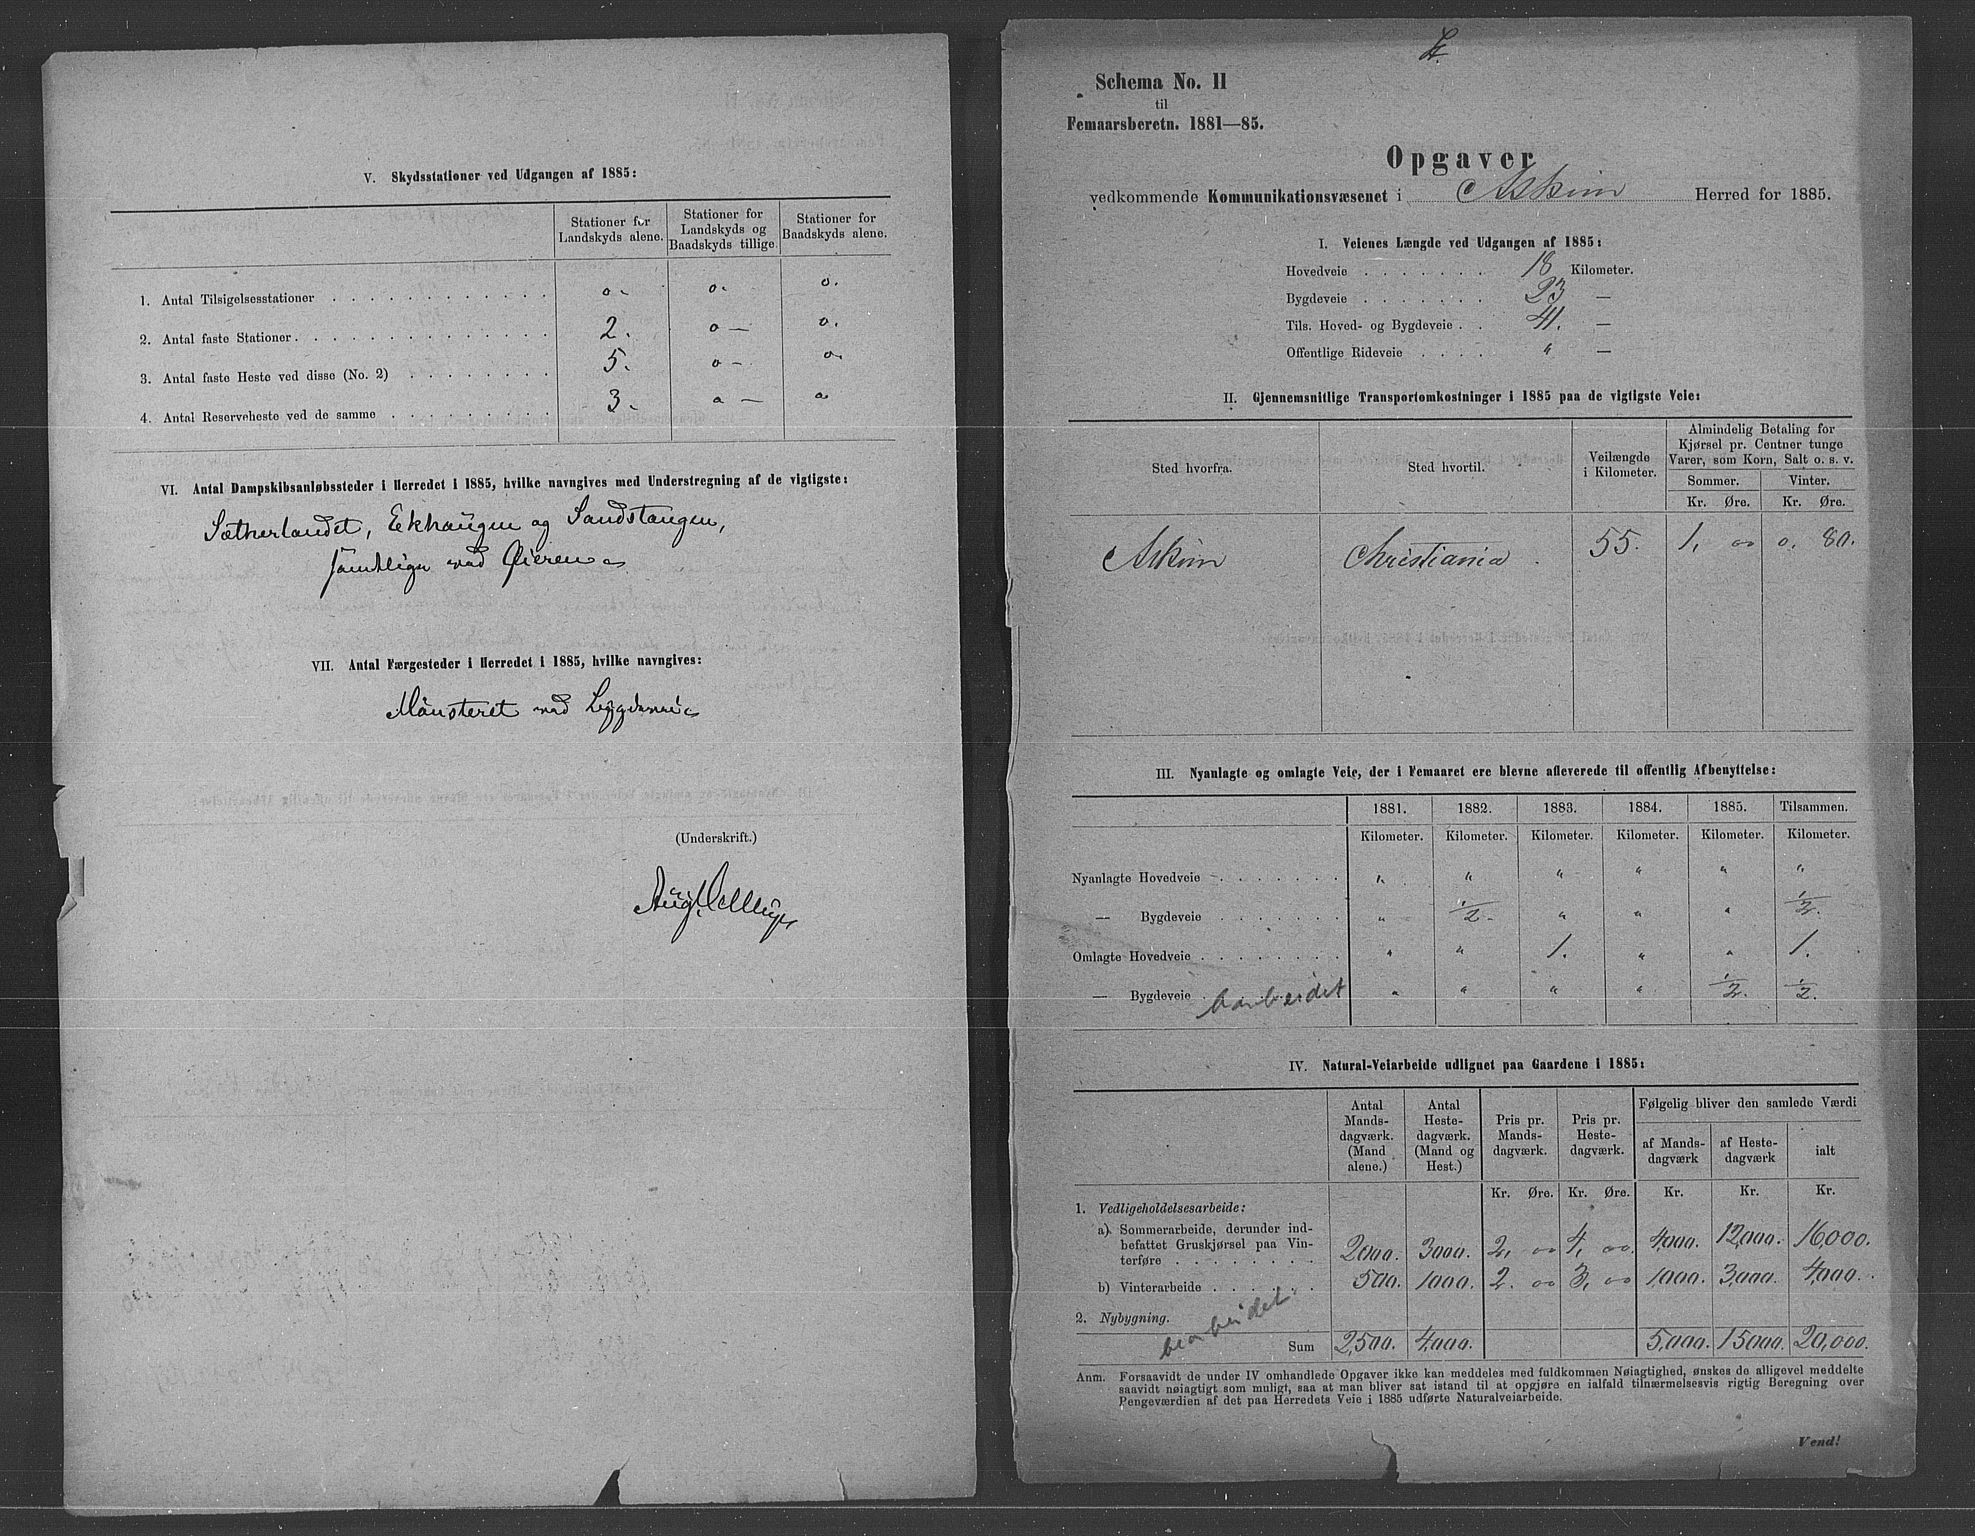 V. Skydsstationer ved Udgangen af 1885:
Stationer for Landskyds alene. | Stationer for Landskyds og Baadskyds tillige. | Stationer for Baadskyds alene.
1. Antal Tilsigelsesstationer . . . o. | o. | o.
2. Antal faste Stationer . . . 2. | o — | o.
3. Antal faste Heste ved disse (No. 2) . . . 5. | o — | o.
4. Antal Reserveheste ved de samme . . . 3. | o — | o
VI. Antal Dampskibsanløbssteder i Herredet i 1885, hvilke navngives med Understregning af de vigtigste:
Sætherlandet, Ekhaugen og Sandstangen,
samtlige ved Øieren
VII. Antal Færgesteder i Herredet i 1885, hvilke navngives:
Mønsteret ved
(Underskrift.)
Schema No. II
til
Femaarsberetn. 1881—85.
Opgaver
vedkommende Kommunikationsvæsenet i Askim Herred for 1885.
I. Veienes Længde ved Udgangen af 1885:
Hovedveie . . . 18 Kilometer.
Bygdeveie . . . 23 —
Tils. Hoved- og Bygdeveie . . 41. —
Offentlige Rideveie . . . " —
II. Gjennemsnitlige Transportomkostninger i 1885 paa de vigtigste Veie:
Sted hvorfra. | Sted hvortil. | Veilængde i Kilometer. | Almindelig Betaling for Kjørsel pr. Centner tunge Varer, som Korn, Salt o. s. v.
Sommer. | Vinter.
Kr. Øre. | Kr. Øre.
Askim | Christiania | 55. | 1, 00 | 0. 80.
III. Nyanlagte og omlagte Veie, der i Femaaret ere blevne afleverede til offentlig Afbenyttelse:
1881. | 1882. | 1883. | 1884. | 1885. | Tilsammen.
Kilometer. | Kilometer. | Kilometer. | Kilometer. | Kilometer. | Kilometer.
Nyanlagte Hovedveie . . . " | " | " | " | " | "
— Bygdeveie . . . " | 1/2. | " | " | " | 1/2.
Omlagte Hovedveie . . . " | " | 1. | " | " | 1.
— Bygdeveie . bearbeidet " | " | " | " | 1/2. | 1/2.
IV. Natural-Veiarbeide udlignet paa Gaardene i 1885:
Antal Mandsdagværk. (Mand alene.) | Antal Hestedagværk. (Mand og Hest.) | Pris pr. Mandsdagværk. | Pris pr. Hestedagværk. | Følgelig bliver den samlede Værdi
af Mandsdagværk | af Hestedagværk | ialt
Kr. Øre. | Kr. Øre. | Kr. | Kr. | Kr.
1. Vedligeholdelsesarbeide:
a) Sommerarbeide, derunder indbefattet Gruskjørsel paa Vinterføre . . . 2000. | 3000. | 2, 00 | 4, 00. | 4,000. | 12,000. | 16000.
b) Vinterarbeide . . . 500. | 1000. | 2. 00 | 3, 00 | 1000. | 3,000. | 4,000.
2. Nybygning.
bearbeidet
Sum 2,500. | 4,000. | | | 5,000. | 15000. | 20,000.
Anm. Forsaavidt de under IV omhandlede Opgaver ikke kan meddeles med fuldkommen Nøiagtighed, ønskes de alligevel meddelte
saavidt nøiagtigt som muligt, saa at man bliver sat istand til at opgjøre en ialfald tilnærmelsesvis rigtig Beregning over
Pengeværdien af det paa Herredets Veie i 1885 udførte Naturalveiarbeide.
Vend!